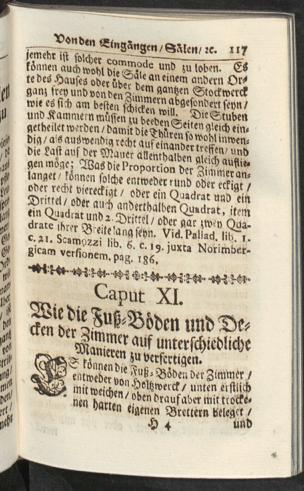 Von den Eingängen / Sälen / ꝛc. 117
jemehr ist solcher commode und zu loben. Es
können auch wohl die Säle an einem andern Or-
te des Hauses oder über dem gantzen Stockwerck
gantz frey und von den Zimmern abgesondert seyn /
wie es sich am besten schicken will. Die Stuben
und Kammern müssen zu beeden Seiten gleich ein-
getheilet werden / damit die Thüren so wohl inwen-
dig / als auswendig recht auf einander treffen / und
die Last auf der Mauer allenthalben gleich auflie-
gen möge: Was die Proportion der Zimmer an-
langet / können solche entweder rund oder eckigt /
oder recht viereckigt / oder ein Quadrat und ein
Drittel / oder auch anderthalben Quadrat, item
ein Quadrat und 2. Drittel / oder gar zwey Qua-
drate ihrer Breite lang seyn. Vid. Pallad. lib. 1.
c. 21. Scamozzi lib. 6. c. 19. juxta Norimber-
gicam versionem, pag. 186.
Caput XI.
Wie die Fuß-Böden und De-
cken der Zimmer auf unterschiedliche
Manieren zu verfertigen.
ES können die Fuß-Böden der Zimmer /
entweder von Holtzwerck / unten erstlich
mit weichen / oben drauf aber mit trocke-
nen harten eigenen Brettern beleget /
H 4 und